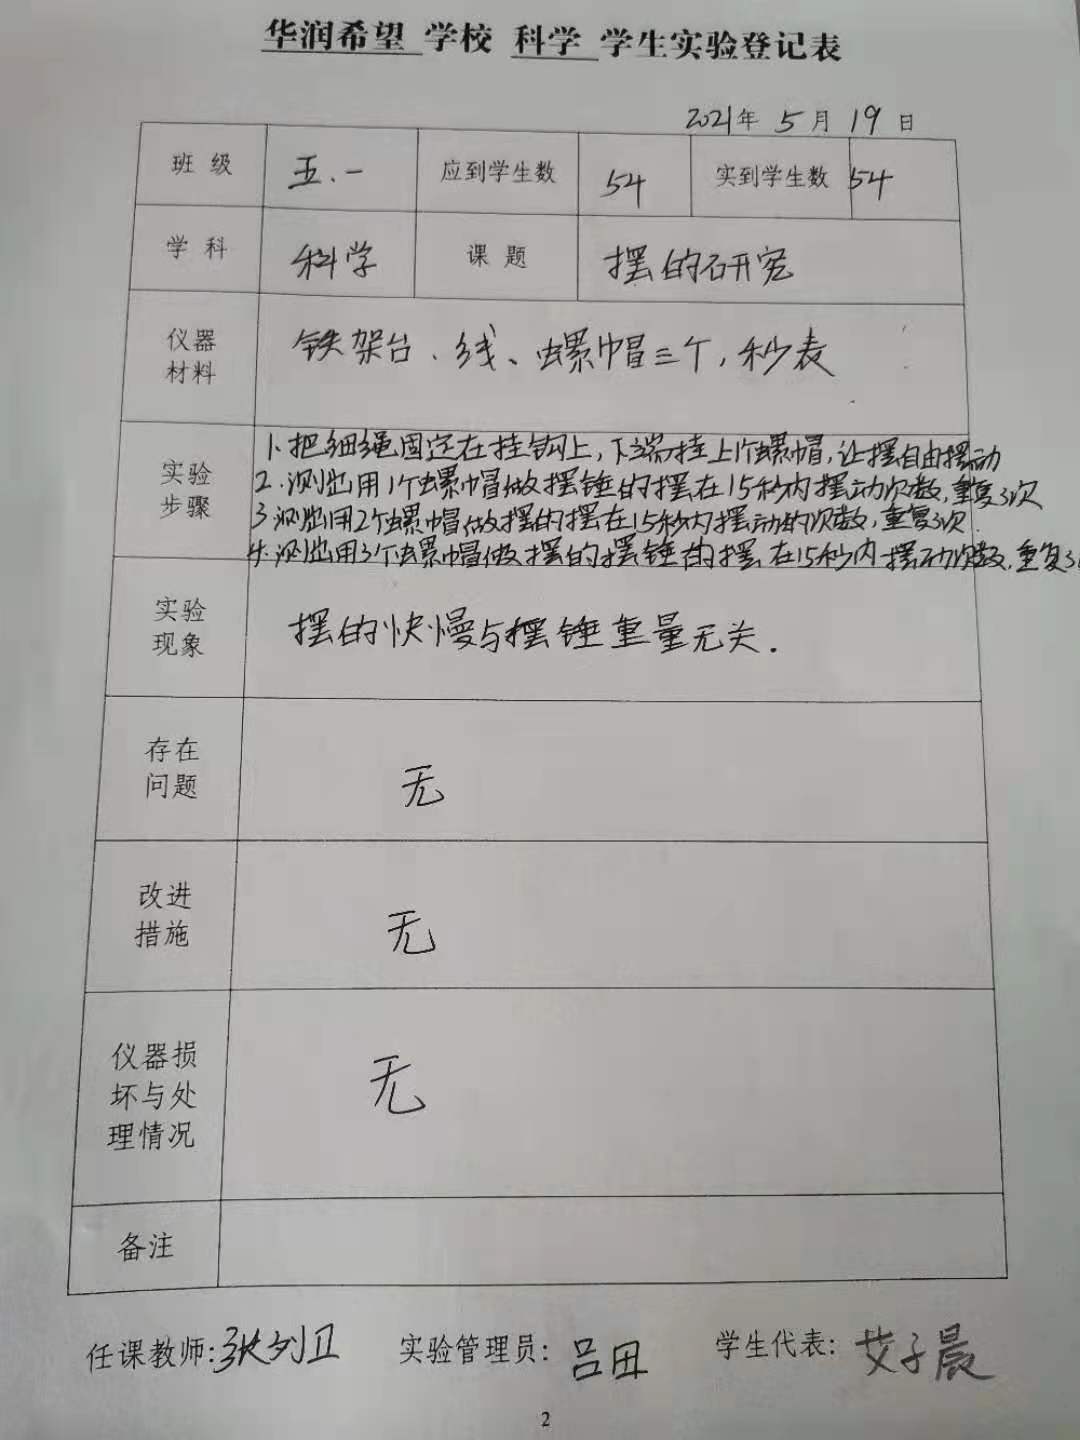 华润希望 学校 科学 学生实验登记表
2021年 5月 19日
班 级 五.一 应到学生数 54 实到学生数 54
学 科 科学 课 题 摆的研究
仪器材料 铁架台、线、螺帽三个,秒表
实验步骤
1.把细绳固定在挂钩上,下端挂上1个螺帽,让摆自由摆动
2.测出用1个螺帽做摆锤的摆在15秒内摆动次数,重复3次
3.测出用2个螺帽做摆的摆在15秒内摆动的次数,重复3次.
4.测出用3个螺帽做摆的摆锤的摆在15秒内摆动次数,重复3
实验现象 摆的快慢与摆锤重量无关.
存在问题 无
改进措施 无
仪器损坏与处理情况 无
备注
任课教师:张列卫 实验管理员:吕田 学生代表:艾子晨
2